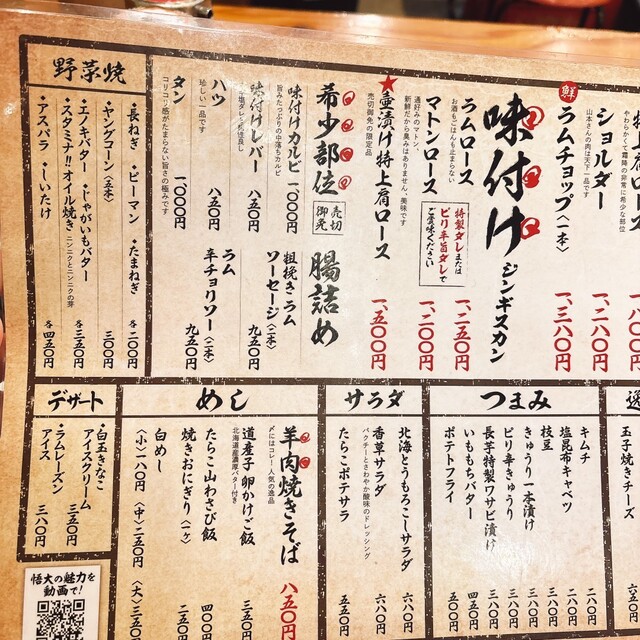 特上肩ロース
やわらかくて霜降の非常に希少な部位
ショルダー
山本さんの肉は天下一品です
一、三八〇円
鮮
ラムチョップ〈一本〉
味付け
ジンギスカン
ラムロース
お酒もごはんも止まらない
一、二五〇円
マトンロース
通好みのマトン、
新鮮だから臭みはありません、美味です
一、二〇〇円
特製ダレまたは
ピリ辛旨ダレで
ご賞味ください
★壷漬け特上肩ロース
売切御免の限定品
一、五〇〇円
希少部位
売切
御免
味付けカルビ
旨みたっぷりの中落ちカルビ
一、〇〇〇円
味付けレバー
八五〇円
ハツ
珍しい一品です
八五〇円
タン
コリコリ感がたまらない旨さの極みです
一、〇〇〇円
腸詰め
粗挽きラム
ソーセージ〈二本〉
九五〇円
ラム
辛チョリソー〈二本〉
九五〇円
野菜焼
・長ねぎ ・ピーマン ・たまねぎ
各二〇〇円
・ヤングコーン〈五本〉
三〇〇円
・エノキバター ・じゃがいもバター
各三五〇円
・スタミナ!!オイル焼き ニンニクとニンニクの芽
・アスパラ ・しいたけ
各四五〇円
玉子焼き
チーズ
つまみ
キムチ
二八〇円
塩昆布キャベツ
二八〇円
枝豆
三八〇円
きゅうり一本漬け
三八〇円
ピリ辛きゅうり
三八〇円
長芋特製ワサビ漬け
三八〇円
いももちバター
四五〇円
ポテトフライ
五〇〇円
サラダ
北海とうもろこしサラダ
六八〇円
香草サラダ
パクチーとさわやか酸味のドレッシング
六八〇円
たらこポテサラ
五五〇円
めし
羊肉焼きそば
〆にはコレ!人気の逸品
八五〇円
道産子 卵かけご飯
北海道産濃厚バター付き
三五〇円
たらこ山わさび飯
四〇〇円
焼きおにぎり〈一ヶ〉
二五〇円
白めし
〈小〉一八〇円 〈中〉二五〇円 〈大〉三五〇円
デザート
・白玉きなこ
アイスクリーム
三五〇円
・ラムレーズン
アイス
三八〇円
悟大の魅力を
動画で!